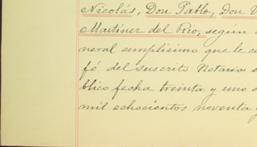 Nicolás, Don Pablo, Don
Martinez del Rio, según
neral amplisimo que le co
fé del suscrito Notario
blico fecha treinta y uno d
mil ochocientos noventa y